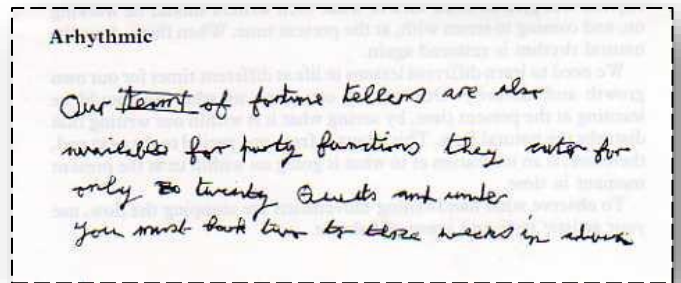 Arhythmic
Our team of fortune tellers are also
available for party functions they cater for
only twenty Guests and under
You must book two to three weeks in advance